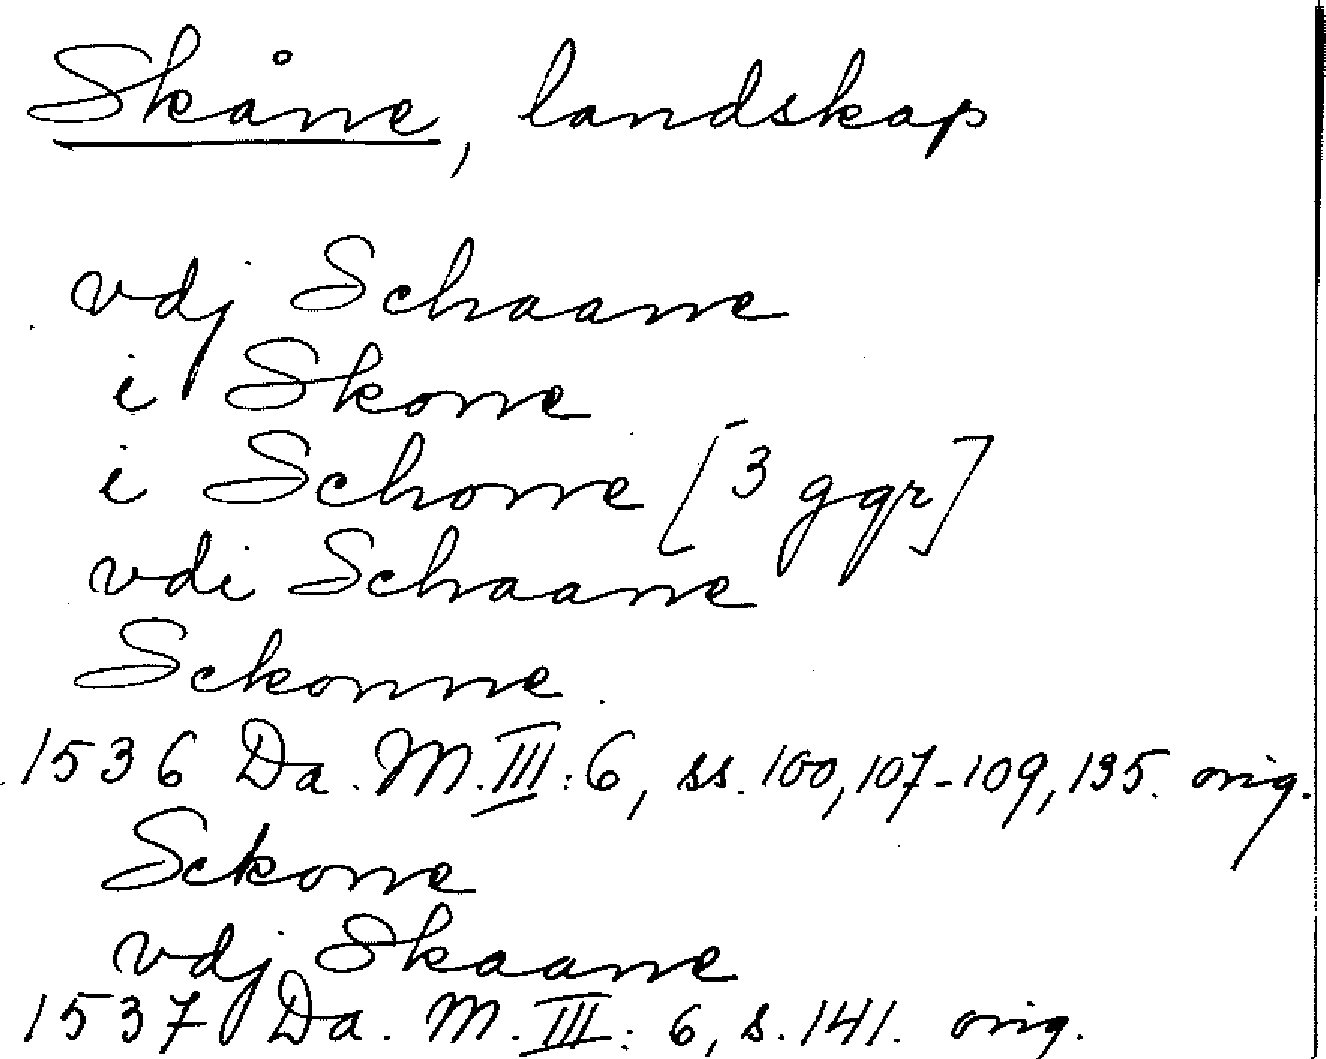 Skåne, landskap
vdj Schaane
i Skone
i Schone [3 ggr]
vdi Schaane
Sckonne.
1536 Da. M. III: 6, ss. 100, 107-109, 135. orig.
Sckone
vdj Skaane
1537 Da. M. III: 6, s. 141. orig.